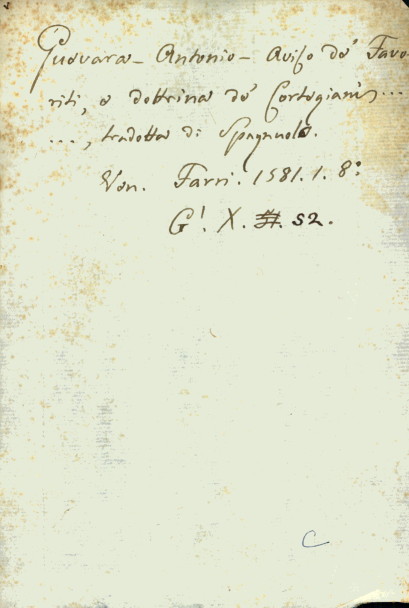 Guevara - Antonio - Aviso de' Favo
riti, e dottrina de' Cortegiani, ...
..., tradotta di Spagnuolo.
Ven. Farri. 1581. 1. 8º
G! X. S2.
C